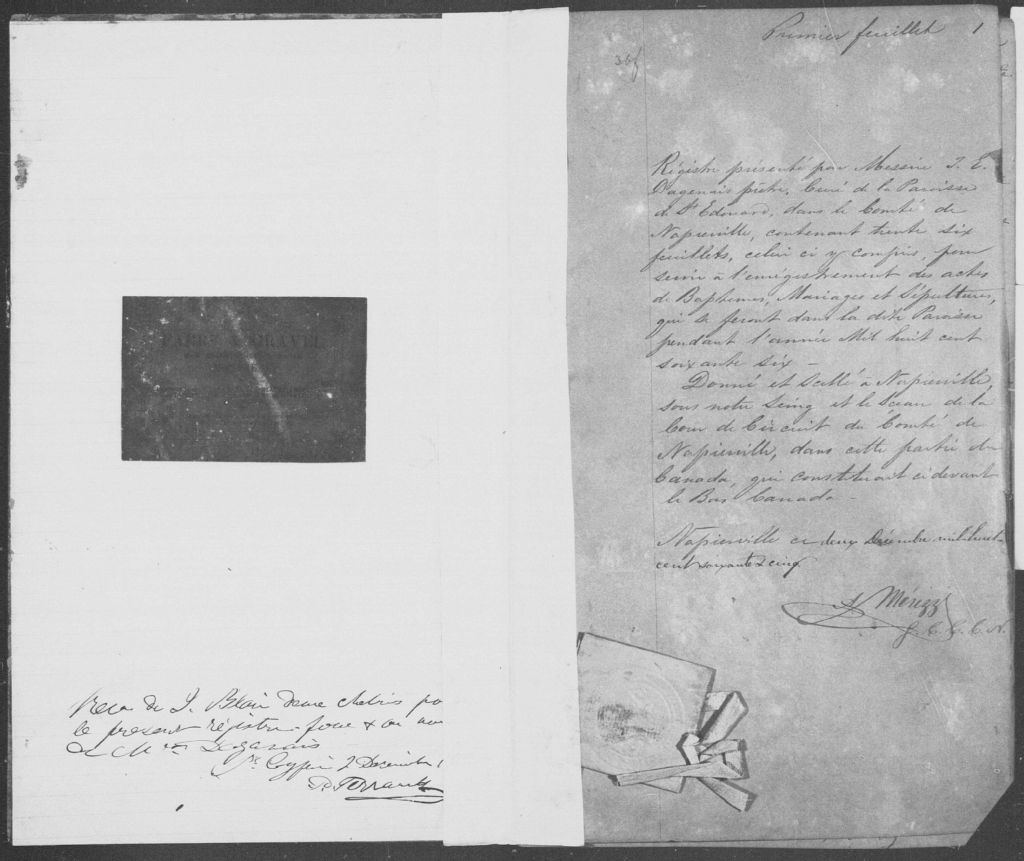 FABRE & GRAVEL
Reçu de J. Blain deux chelins po
le présent régistre pour & au
de Mre Dagenais
St Cyprien 2 Décembre 1
Premier feuillet 1
36 f
Régistre présenté par Messire J. E.
Dagenais ptre, Curé de la Paroisse
de St Edouard, dans le Comté de
Napierville, contenant trente six
feuillets, celui ci y compris, pour
servir à l'enrégistrement des actes
de Baptêmes, Mariages et Sépultures,
qui se feront dans la dite Paroisse
pendant l'année Mil huit cent
soixante six —
Donné et Scellé à Napierville,
sous notre Seing et le Sceau de la
Cour de Circuit du Comté de
Napierville, dans cette partie du
Canada, qui constituait ci devant
le Bas Canada —
Napierville ce deux Décembre mil huit
cent soixante & cinq
G. C. C. C. N.